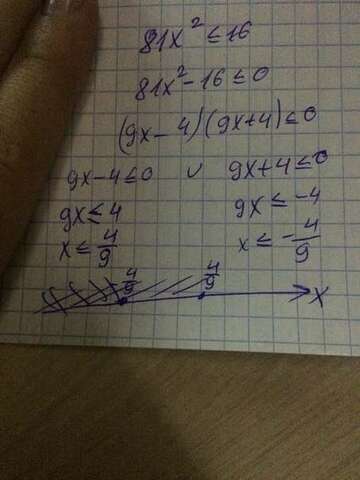 81x² ≤ 16
81x² - 16 ≤ 0
(9x - 4)(9x + 4) ≤ 0
9x - 4 ≤ 0 ∪ 9x + 4 ≤ 0
9x ≤ 4 9x ≤ -4
x ≤ 4/9 x ≤ -4/9
-4/9 4/9 x